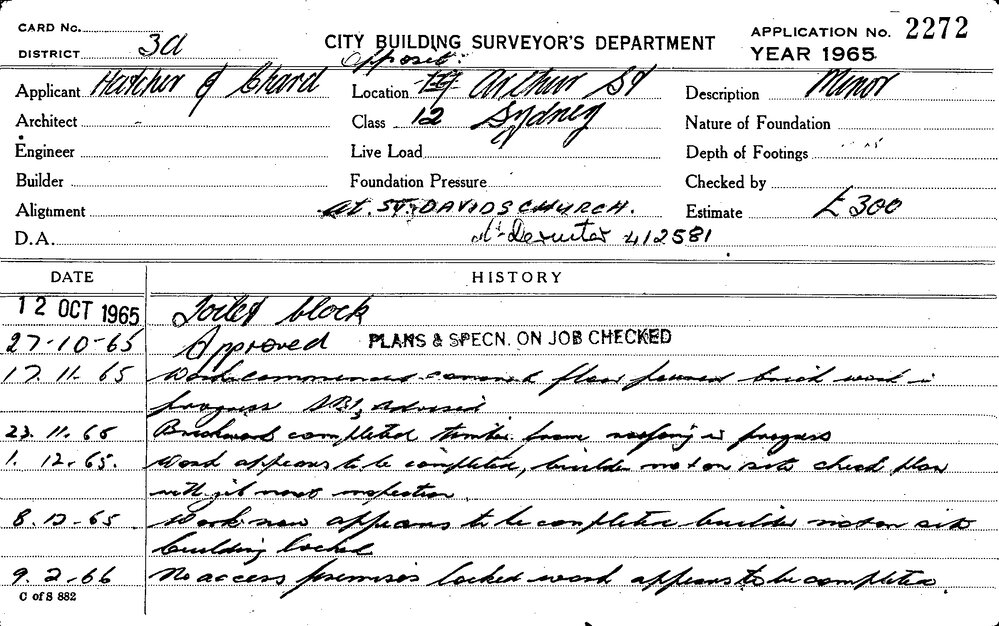 CARD No.
DISTRICT 3a
CITY BUILDING SURVEYOR'S DEPARTMENT
APPLICATION No. 2272
YEAR 1965
Applicant Hatcher & Chard
Location Opposite Arthur St
Description Minor
Architect -
Class 12 Sydney
Nature of Foundation
Engineer
Live Load
Depth of Footings
Builder
Foundation Pressure
Checked by
Alignment
At. ST. DAVIDS CHURCH.
Estimate £300
D.A.
412581
DATE HISTORY
12 OCT 1965 Toilet block
27-10-65 Approved PLANS & SPECN. ON JOB CHECKED
17.11.65 Work commenced concrete floor poured brick work in
progress advised
23.11.65 Brickwork completed timber frame roofing in progress
1.12.65. Work appears to be completed, builder not on site check plan
with job next inspection.
8.12.65 Work now appears to be completed builder not on site
building locked
9.2.66 No access premises locked work appears to be completed.
C of S 882